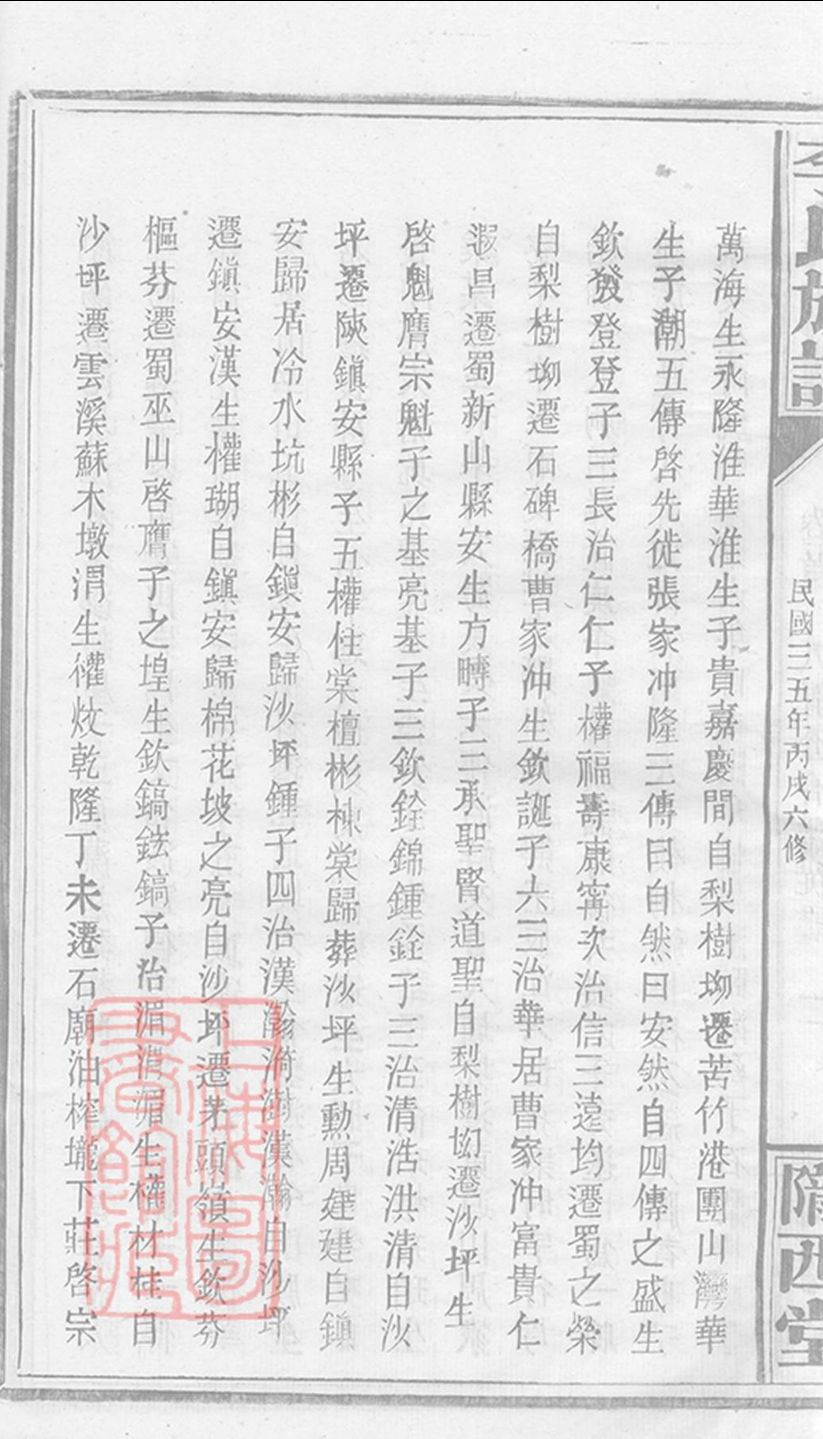 李氏族譜
民國三五年丙戌六修
隴西堂
萬海生永隆淮華淮生子貴嘉慶間自梨樹坳遷苦竹港團山灣華
生子潮五傳啓先徙張家冲隆三傳曰自然曰安然自四傳之盛生
欽發登登子三長治仁仁子權福壽康寗次治信三遠均遷蜀之榮
自梨樹坳遷石碑橋曹家冲生欽誕子六三治華居曹家冲富貴仁
遐昌遷蜀新山縣安生方疇子三承聖賢道聖自梨樹坳遷沙坪生
啓魁膺宗魁子之基亮基子三欽銓錦鍾銓子三治清浩洪清自沙
坪遷陝鎮安縣子五權任棠檀彬棟棠歸葬沙坪生勲周建建自鎮
安歸居冷水坑彬自鎮安歸沙坪鍾子四治漢瀚漪澍漢瀚自沙坪
遷鎮安漢生權瑚自鎮安歸棉花坡之亮自沙坪遷茅頭嶺生欽芬
樞芬遷蜀巫山啓膺子之堭生欽鎬鋐鎬子治湄渭湄生權材桂自
沙坪遷雲溪蘇木墩渭生權炆乾隆丁未遷石廟油榨壠下莊啓宗
上海圖書館藏